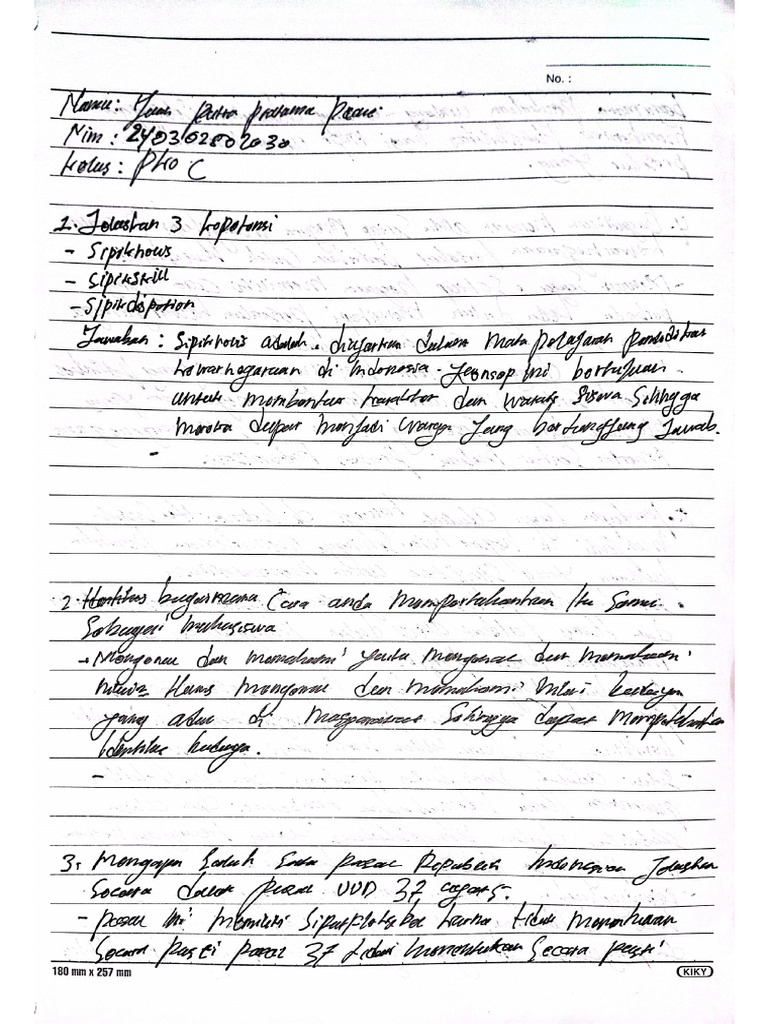 No. :
Nama : Putra Pratama
Nim : 240302802030
kelas : PKO C
1. Jelaskan 3 kopetensi
- Sipikhows
- Sipikskill
- Sipikdispotion
Jawaban : Sipikhows adalah diajarkan dalam Mata pelajaran pendidikan
kewarnegaraan di indonesia. konsep ini bertujuan
untuk membentuk karakter dan warga siswa Sehingga
mereka dapat menjadi warga yang bertanggjang Jawab.
-
2. bagaimana Cara anda mempertahankan itu Semua
Sebagai mahasiswa
- Mengenal dan memahami yaitu mengenal dan memahami
Harus mengenal dan memahami nilai budaya
yang ada di Masyarakat Sehingga dapat mempertahankan
Identitas budaya.
-
3. Mengapa Salah Satu pasal Republik Indonesia Jelaskan
Secara dalam pasal UUD 37
- pasal ini memiliki Sipat karna tidak menentukan
Secara pasti pasal 37 tidak menentukan Secara pasti
180 mm x 257 mm
KIKY